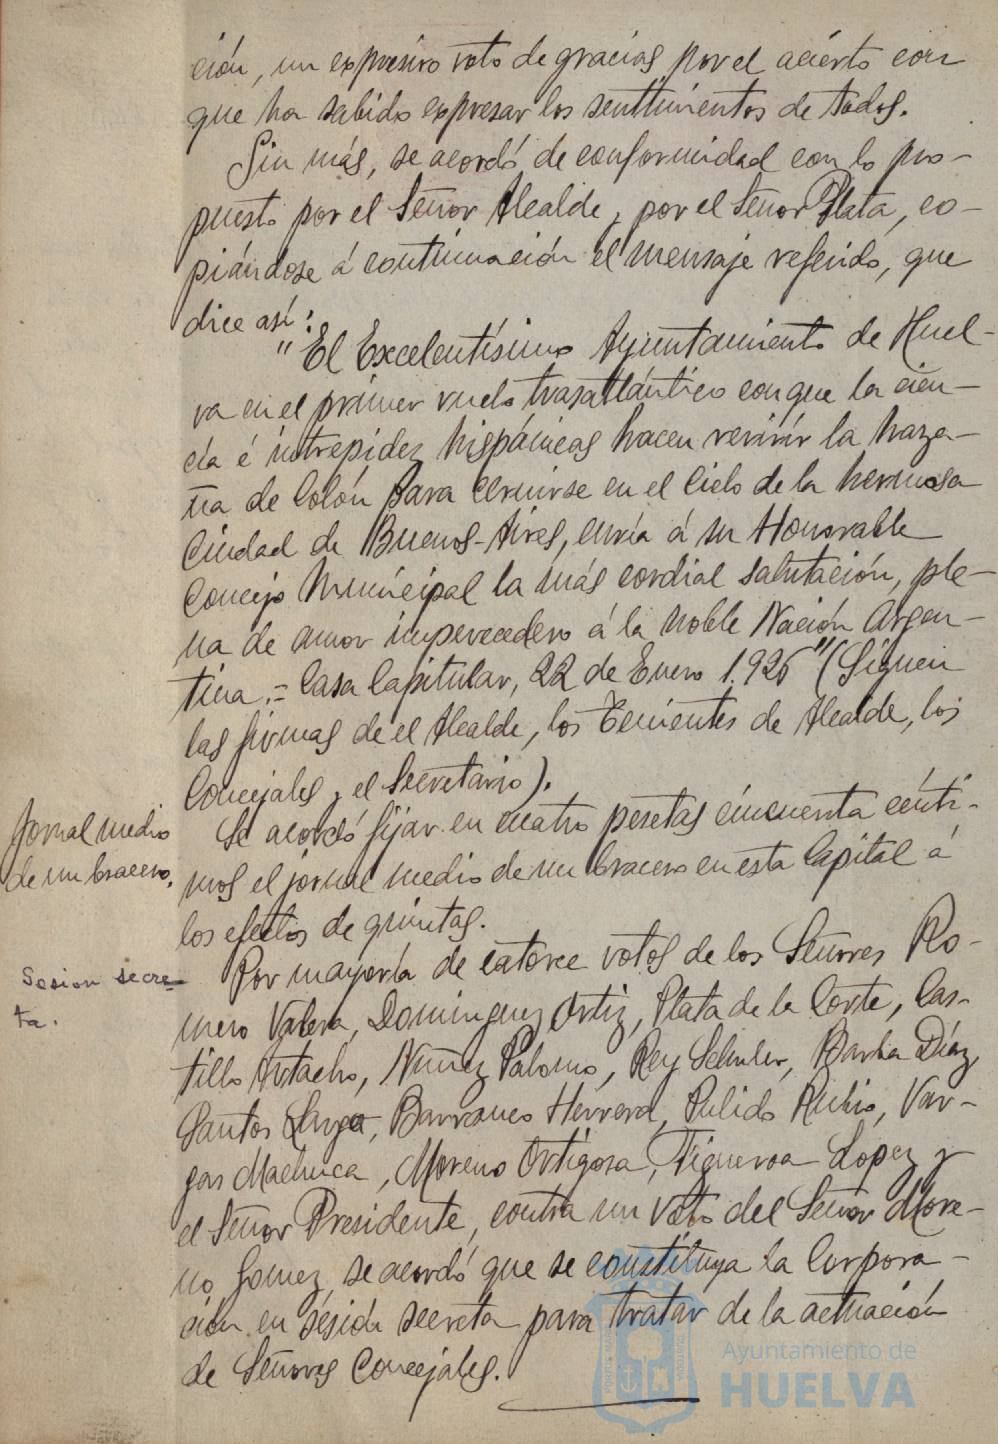 ción, un expresivo voto de gracias por el acierto con
que ha sabido expresar los sentimientos de todos.
Sin más, se acordó de conformidad con lo pro-
puesto por el Señor Alcalde y por el Señor Plata, co-
piándose á continuación el mensaje referido, que
dice así:
"El Excelentísimo Ayuntamiento de Huel-
va en el primer vuelo trasatlántico con que la cien-
cia é intrepidez hispánicas hacen revivir la haza-
ña de Colón para cernirse en el Cielo de la hermosa
Ciudad de Buenos-Aires, envía á su Honorable
Concejo Municipal la más cordial salutación, ple-
na de amor imperecedero á la noble Nación Argen-
tina.= Casa Capitular, 22 de Enero 1.926" (Siguen
las firmas de el Alcalde, los Tenientes de Alcalde, los
Concejales y el Secretario).
Jornal medio
de un bracero.
Se acordó fijar en cuatro pesetas cincuenta cénti-
mos el jornal medio de un bracero en esta Capital á
los efectos de quintas.
Sesion secre-
ta.
Por mayoría de catorce votos de los Señores Ro-
mero Valera, Dominguez Ortiz, Plata de la Corte, Cas-
tillo Astacho, Nuñez Palomo, Rey Schuler, Barba Díaz,
Santos Barranco Herrera, Pulido Rubio, Var-
gas Machuca, Moreno Ortigosa, Figueroa Lopez y
el Señor Presidente, contra un voto del Señor More-
no Gomez se acordó que se constituya la Corpora-
ción en sesión secreta para tratar de la actuación
de Señores Concejales.
Ayuntamiento de
HUELVA